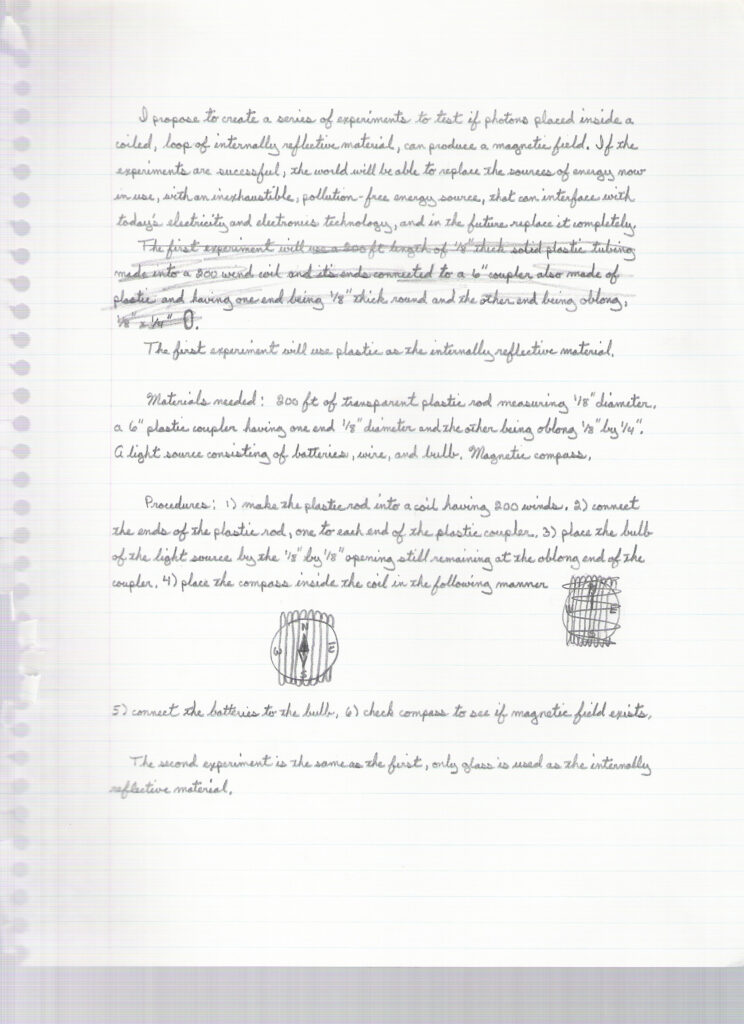 I propose to create a series of experiments to test if photons placed inside a
coiled, loop of internally reflective material, can produce a magnetic field. If the
experiments are sucessful, the world will be able to replace the sources of energy now
in use, with an inexhaustible, pollution-free energy source, that can interface with
today's electricity and electronics technology, and in the future replace it completely.
The first experiment will use a 200 ft length of 1/8" thick solid plastic tubing
made into a 200 wind coil and its ends connected to a 6" coupler also made of
plastic and having one end being 1/8" thick round and the other end being oblong,
1/8" x 1/4" 0.
The first experiment will use plastic as the internally reflective material.
Materials needed: 200 ft of transparent plastic rod measuring 1/8" diameter,
a 6" plastic coupler having one end 1/8" diameter and the other being oblong 1/8" by 1/4".
A light source consisting of batteries, wire, and bulb. Magnetic compass.
Procedures: 1) make the plastic rod into a coil having 200 winds. 2) connect
the ends of the plastic rod, one to each end of the plastic coupler. 3) place the bulb
of the light source by the 1/8" by 1/8" opening still remaining at the oblong end of the
coupler. 4) place the compass inside the coil in the following manner
N
W E
S
5) connect the batteries to the bulb. 6) check compass to see if magnetic field exists.
The second experiment is the same as the first, only glass is used as the internally
reflective material.